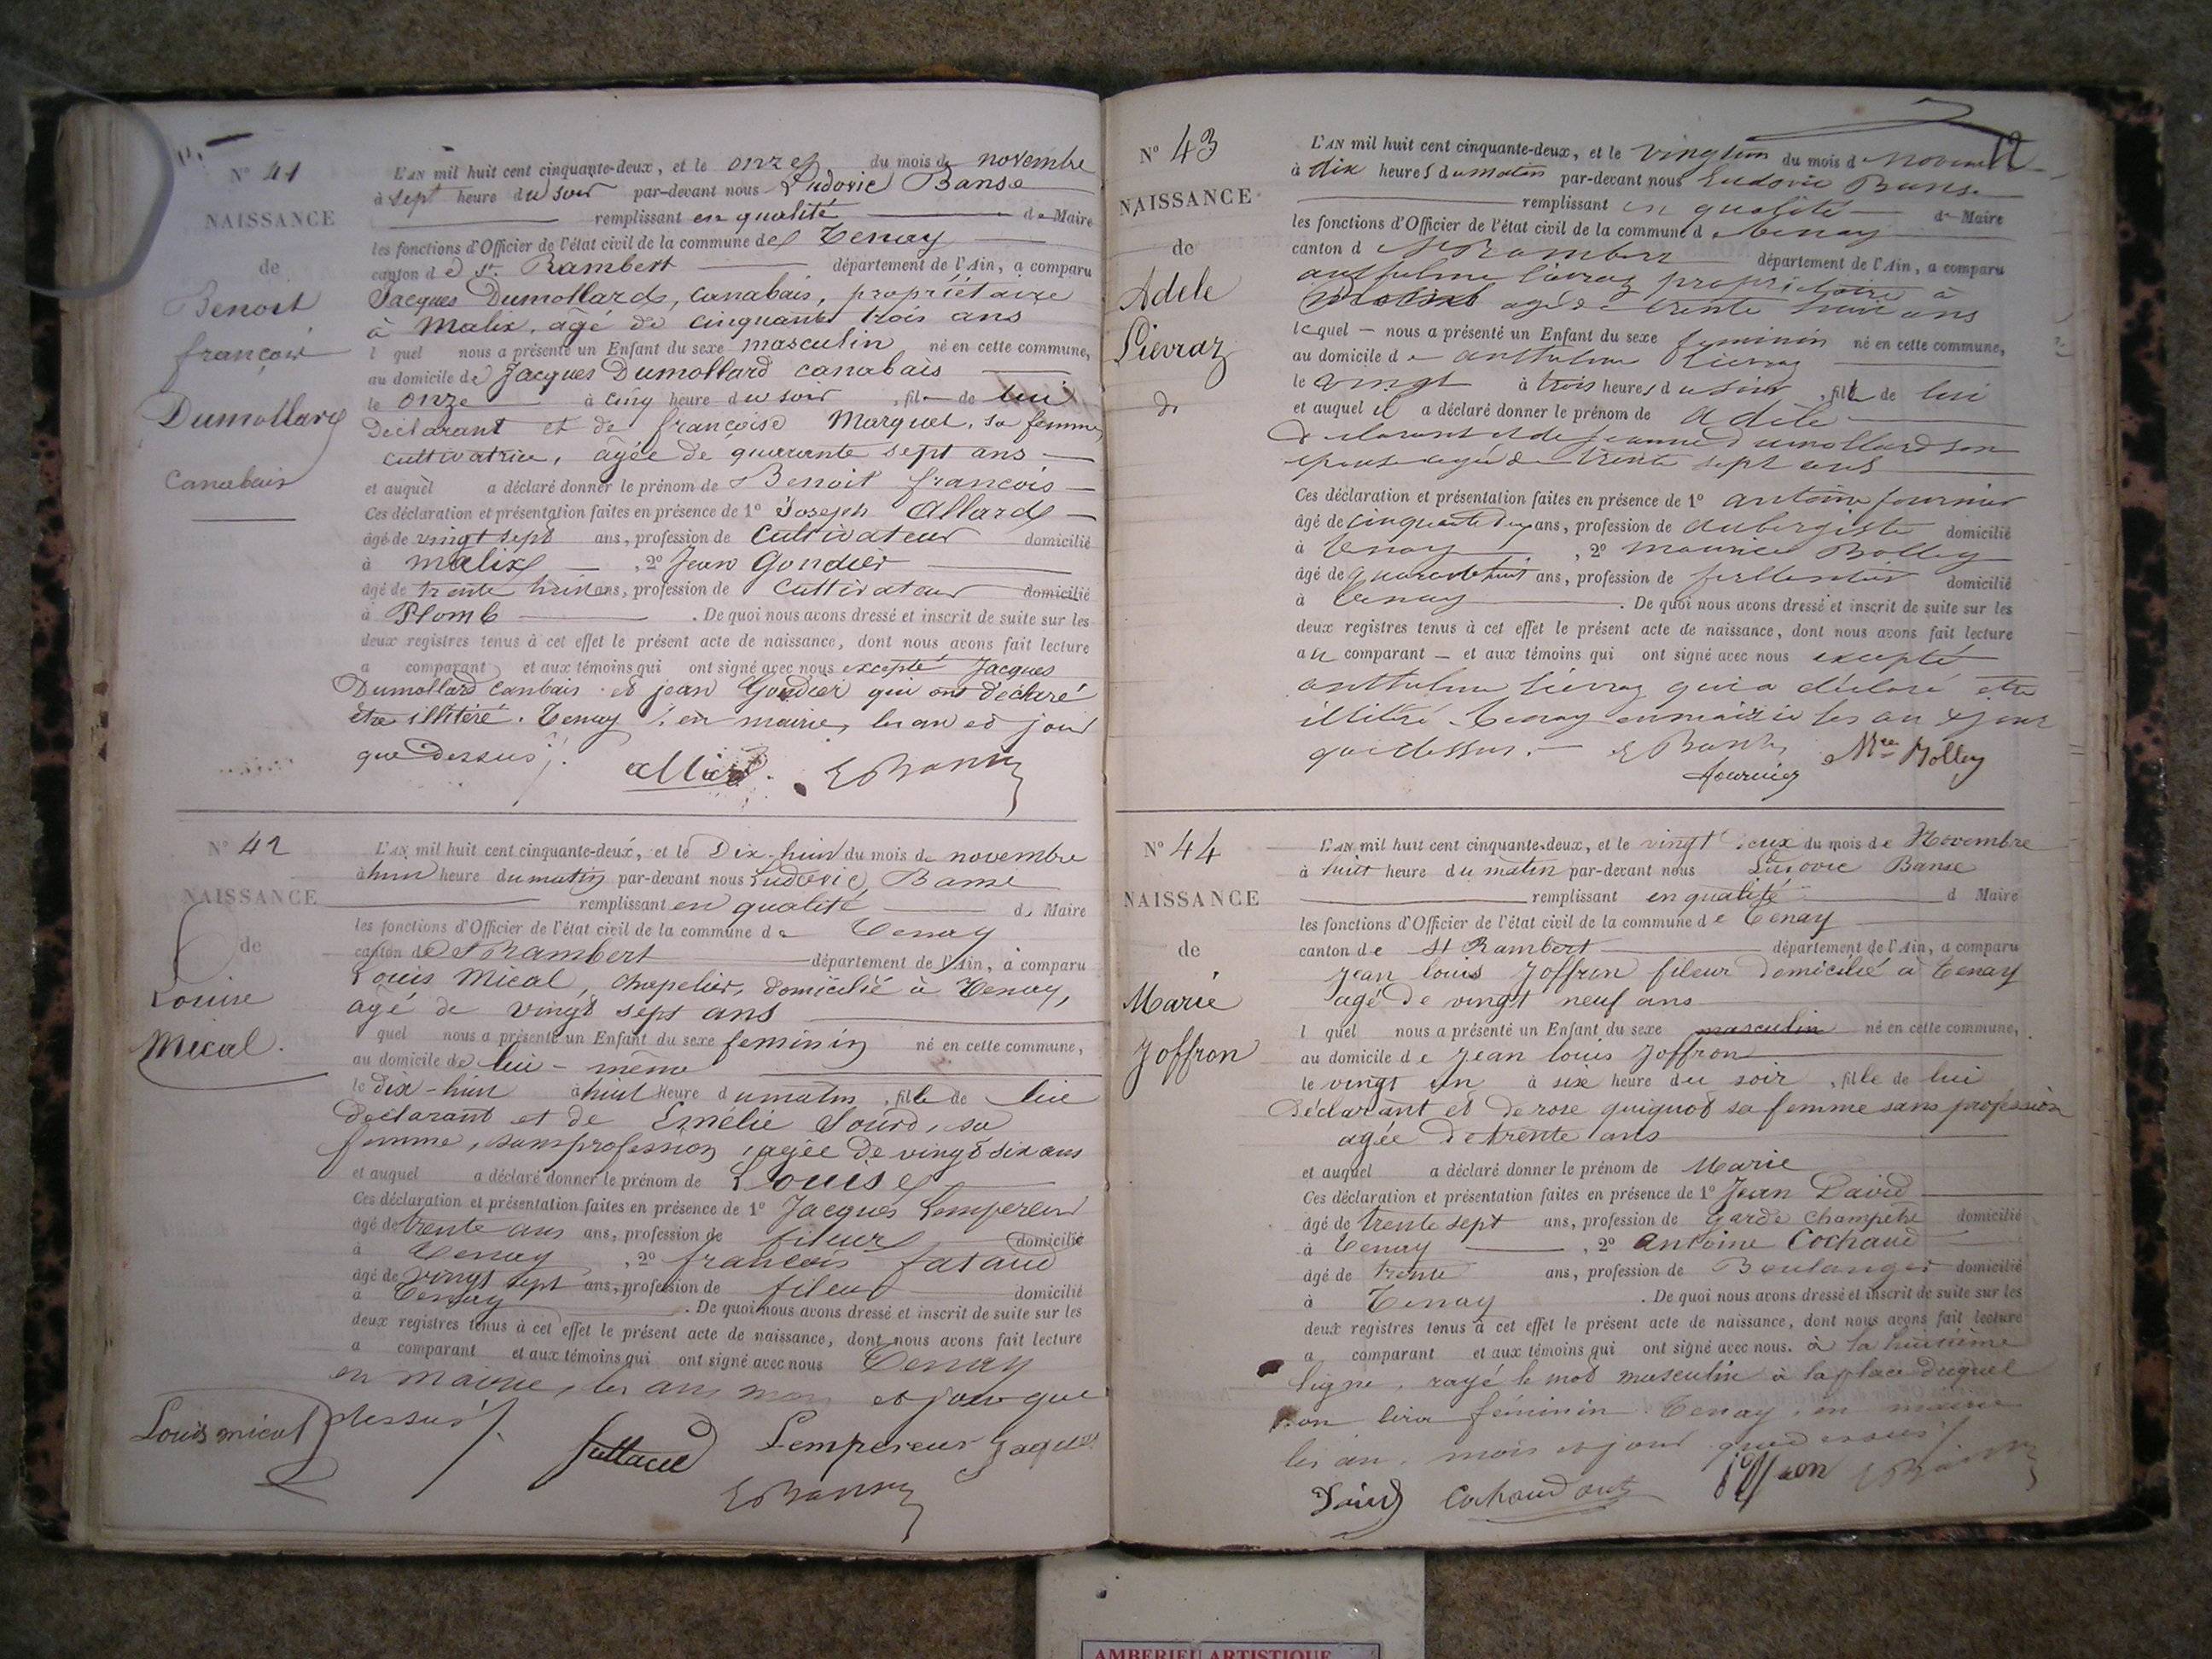 N° 41
NAISSANCE
de
Benoit
françois
Dumollard
Canabais
L'AN mil huit cent cinquante-deux, et le onze du mois de novembre
à sept heure du soir par-devant nous Ludovic Banse
remplissant en qualité de Maire
les fonctions d'Officier de l'état civil de la commune de Tenay
canton de St. Rambert département de l'Ain, a comparu
Jacques Dumollard, canabais, propriétaire
à Malix, âgé de cinquante trois ans
l quel nous a présenté un Enfant du sexe masculin né en cette commune,
au domicile de Jacques Dumollard canabais
le onze à cinq heure du soir, fil de lui
Déclarant et de françoise Marquet, sa femme
cultivatrice, âgée de quarante sept ans
et auquel a déclaré donner le prénom de Benoit françois
Ces déclaration et présentation faites en présence de 1° Joseph Allard
âgé de vingt sept ans, profession de Cultivateur domicilié
à malix, 2° Jean Gondier
âgé de trente huit ans, profession de Cultivateur domicilié
à Plomb. De quoi nous avons dressé et inscrit de suite sur les
deux registres tenus à cet effet le présent acte de naissance, dont nous avons fait lecture
a comparant et aux témoins qui ont signé avec nous excepté Jacques
Dumollard canbais et jean Gondier qui ont déclaré
être illitéré. Tenay en mairie, les an et jour
que Dessus.
allard. L Banse
N° 42
NAISSANCE
de
Louise
Mical.
L'AN mil huit cent cinquante-deux, et le Dix-huit du mois de novembre
à huit heure du matin par-devant nous Ludovic Banse
remplissant en qualité de Maire
les fonctions d'Officier de l'état civil de la commune de Tenay
canton de St Rambert département de l'Ain, a comparu
Louis Mical, chapelier, domicilié à Tenay,
agé de vingt sept ans
l quel nous a présenté un Enfant du sexe feminin né en cette commune,
au domicile de lui-même
le dix-huit à huit heure du matin, fille de lui
déclarant et de Emélie Sourd, sa
femme, sans profession, agée de vingt six ans
et auquel a déclaré donner le prénom de Louise
Ces déclaration et présentation faites en présence de 1° Jacques Lempereur
âgé de trente ans ans, profession de fileur domicilié
à Tenay, 2° françois fataud
âgé de vingt sept ans, profession de fileur domicilié
à Tenay. De quoi nous avons dressé et inscrit de suite sur les
deux registres tenus à cet effet le présent acte de naissance, dont nous avons fait lecture
a comparant et aux témoins qui ont signé avec nous Tenay
en mairie, les an, mois et jour que
dessus.
Louis mical Lempereur Jaques
L Banse
12
N° 43
NAISSANCE
de
Adele
Lievraz
L'AN mil huit cent cinquante-deux, et le vingt un du mois d Novembre
à dix heures du matin par-devant nous Ludovic Banse
remplissant en qualité de Maire
les fonctions d'Officier de l'état civil de la commune d Tenay
canton d St Rambert département de l'Ain, a comparu
anthelme Lievraz propriétaire à
agé de trente huit ans
lequel nous a présenté un Enfant du sexe feminin né en cette commune,
au domicile de anthelme Lievraz
le vingt à trois heures du soir, fille de lui
et auquel il a déclaré donner le prénom de adèle
déclarant et de jeanne dumollard son
epouse agée de trente sept ans
Ces déclaration et présentation faites en présence de 1° antoine fournier
âgé de cinquante deux ans, profession de aubergiste domicilié
à Tenay, 2° maurice Bolley
âgé de quarante huit ans, profession de ferblantier domicilié
à Tenay. De quoi nous avons dressé et inscrit de suite sur les
deux registres tenus à cet effet le présent acte de naissance, dont nous avons fait lecture
au comparant et aux témoins qui ont signé avec nous excepté
anthelme Lievraz qui a déclaré etre
illitéré. Tenay en mairie les an et jour
que dessus. L Banse Mce Bolley
fournier
N° 44
NAISSANCE
de
Marie
Joffron
L'AN mil huit cent cinquante-deux, et le vingt deux du mois de Novembre
à huit heure du matin par-devant nous Ludovic Banse
remplissant en qualité d Maire
les fonctions d'Officier de l'état civil de la commune de Tenay
canton de St Rambert département de l'Ain, a comparu
Jean louis Joffron fileur domicilié à Tenay
agé de vingt neuf ans
l quel nous a présenté un Enfant du sexe masculin né en cette commune,
au domicile de Jean louis Joffron
le vingt un à six heure du soir, fille de lui
Déclarant et de rose quiquot sa femme sans profession
agée de trente ans
et auquel a déclaré donner le prénom de Marie
Ces déclaration et présentation faites en présence de 1° Jean David
âgé de trente sept ans, profession de garde champêtre domicilié
à Tenay, 2° Antoine Cochaud
âgé de trente ans, profession de Boulanger domicilié
à Tenay. De quoi nous avons dressé et inscrit de suite sur les
deux registres tenus à cet effet le présent acte de naissance, dont nous avons fait lecture
a comparant et aux témoins qui ont signé avec nous. à la huitième
ligne, rayé le mot masculin à la place duquel
on lira féminin. Tenay, en mairie
les an, mois et jour que dessus
David Cochaud ant Joffron L Banse
AMBERIEU ARTISTIQUE